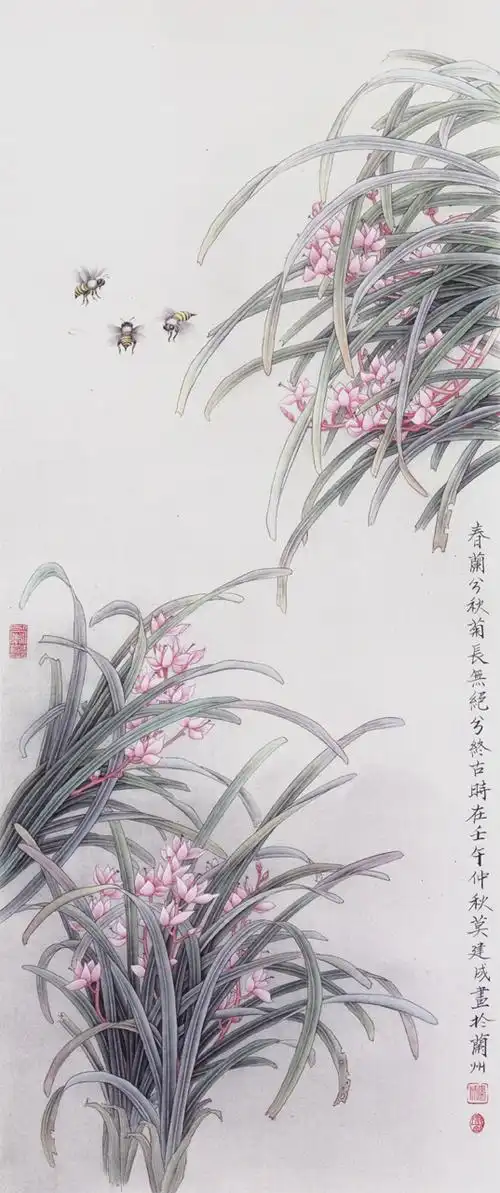 春蘭兮秋菊長無絕兮終古時在壬午仲秋莫建成畫於蘭州